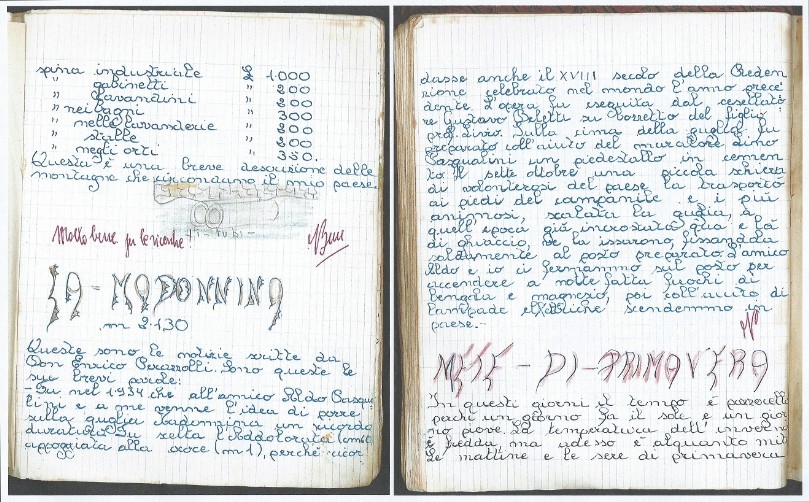 spina industriale £ 1.000
" gabinetti " 200
" lavandini " 200
" nei bagni " 300
" nelle lavanderie " 200
" stalle " 200
" negli orti " 350.
Questa è una breve descrizione delle
montagne che circondano il mio paese.
- I - TUBI -
Molto bene per le ricerche!
LA - MADONNINA
m 2130
Queste sono le notizie scritte da
Don Enrico Sono queste le
sue brevi parole:
- Fu nel 1934 che all'amico Aldo Pasqua
lini e a me venne l'idea di porre
sulla guglia badomina un ricordo
duraturo. Fu scelta l'Addolorata
appoggiata alla croce (m 1), perchè ricor
dasse anche il XVIII secolo della Reden
zione celebrato nel mondo l'anno prece
dente. L'opera fu eseguita dal cesellato
re Gustavo su bozzetto del figlio
prof. Livio. Sulla cima della guglia fu
preparato coll'aiuto del muratore Dino
Pasqualini un piedestallo in cemen
to. Il sette ottobre una piccola schiera
di volonterosi del paese la trasportò
ai piedi del campanile e i più
animosi, scalata la guglia, a
quell'epoca già incrostata qua e là
di ghiaccio, ve la issarono, fissandola
saldamente, al posto preparato. L'amico
Aldo e io ci fermammo sul posto per
accendere a notte fatta fuochi di
bengala e magnesio, poi coll'aiuto di
lampade elettriche scendemmo in
paese. -
MESE - DI - PRIMAVERA
In questi giorni il tempo è pazzerello
perchè un giorno fa il sole e un gior
no piove. La temperatura dell'inverno
è fredda, ma adesso è alquanto mite
Le mattine e le sere di primavera